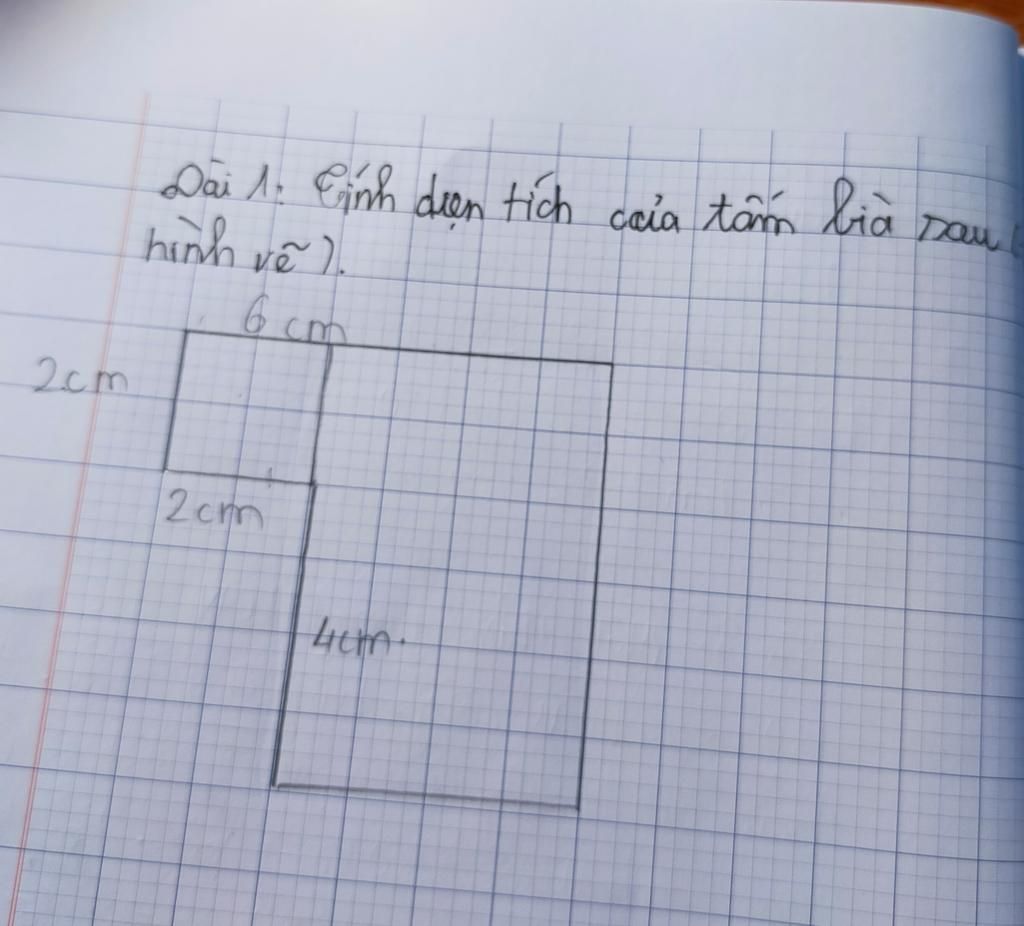 Bài 1: Tính diện tích của tấm bìa sau (
hình vẽ).
6 cm
2cm
2cm
4cm.